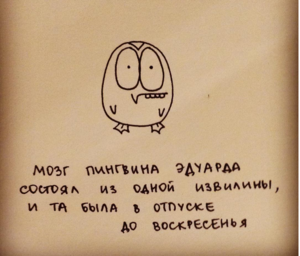 мозг пингвина Эдуарда
состоял из одной извилины,
и та была в отпуске
до воскресенья